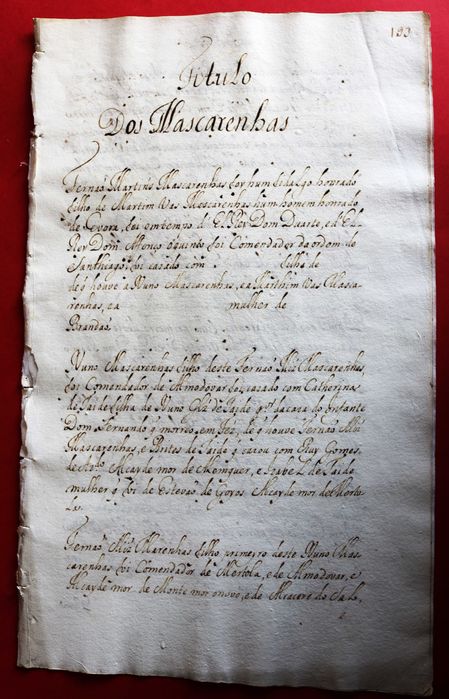 193
Titulo
Dos Mascarenhas
Fernaõ Martins Mascarenhas foy hum fidalgo honrado
filho de Martim Vas Mascarenhas hum homem honrado
de Evora, foi em tempo d' El Rey Dom Duarte, e d' El
Rey Dom Afonço foi Comendador da ordem de
Santhiago, foi casado com filha de
de q̃ houve a Nuno Mascarenhas, e a Marthim Vas Masca-
renhas, e a mulher de
Brandaõ
Nuno Mascarenhas filho deste Fernaõ Miz̃ Mascarenhas,
foi Comendador de Almodovar foi casado com Catherina
de Taide filha de Nuno Glz̃ de Taide da casa do Infante
Dom Fernando q̃ morreo em Fez, de q̃ houve Fernaõ Miz̃
Mascarenhas, e Brites de Taide q̃ casou com Ruy Gomes,
de Alcayde mor de Alemquer, e de Taide
mulher q̃ foi de Estevaõ de Goyos Alcayde mor de Merto-
la.
Fernaõ Miz̃ Marenhas filho primeiro deste Nuno Mas-
carenhas foi Comendador de Mertola, e de Almodovar, e
Alcayde mor de Monte mor o novo, e de Alcacere do Sal,